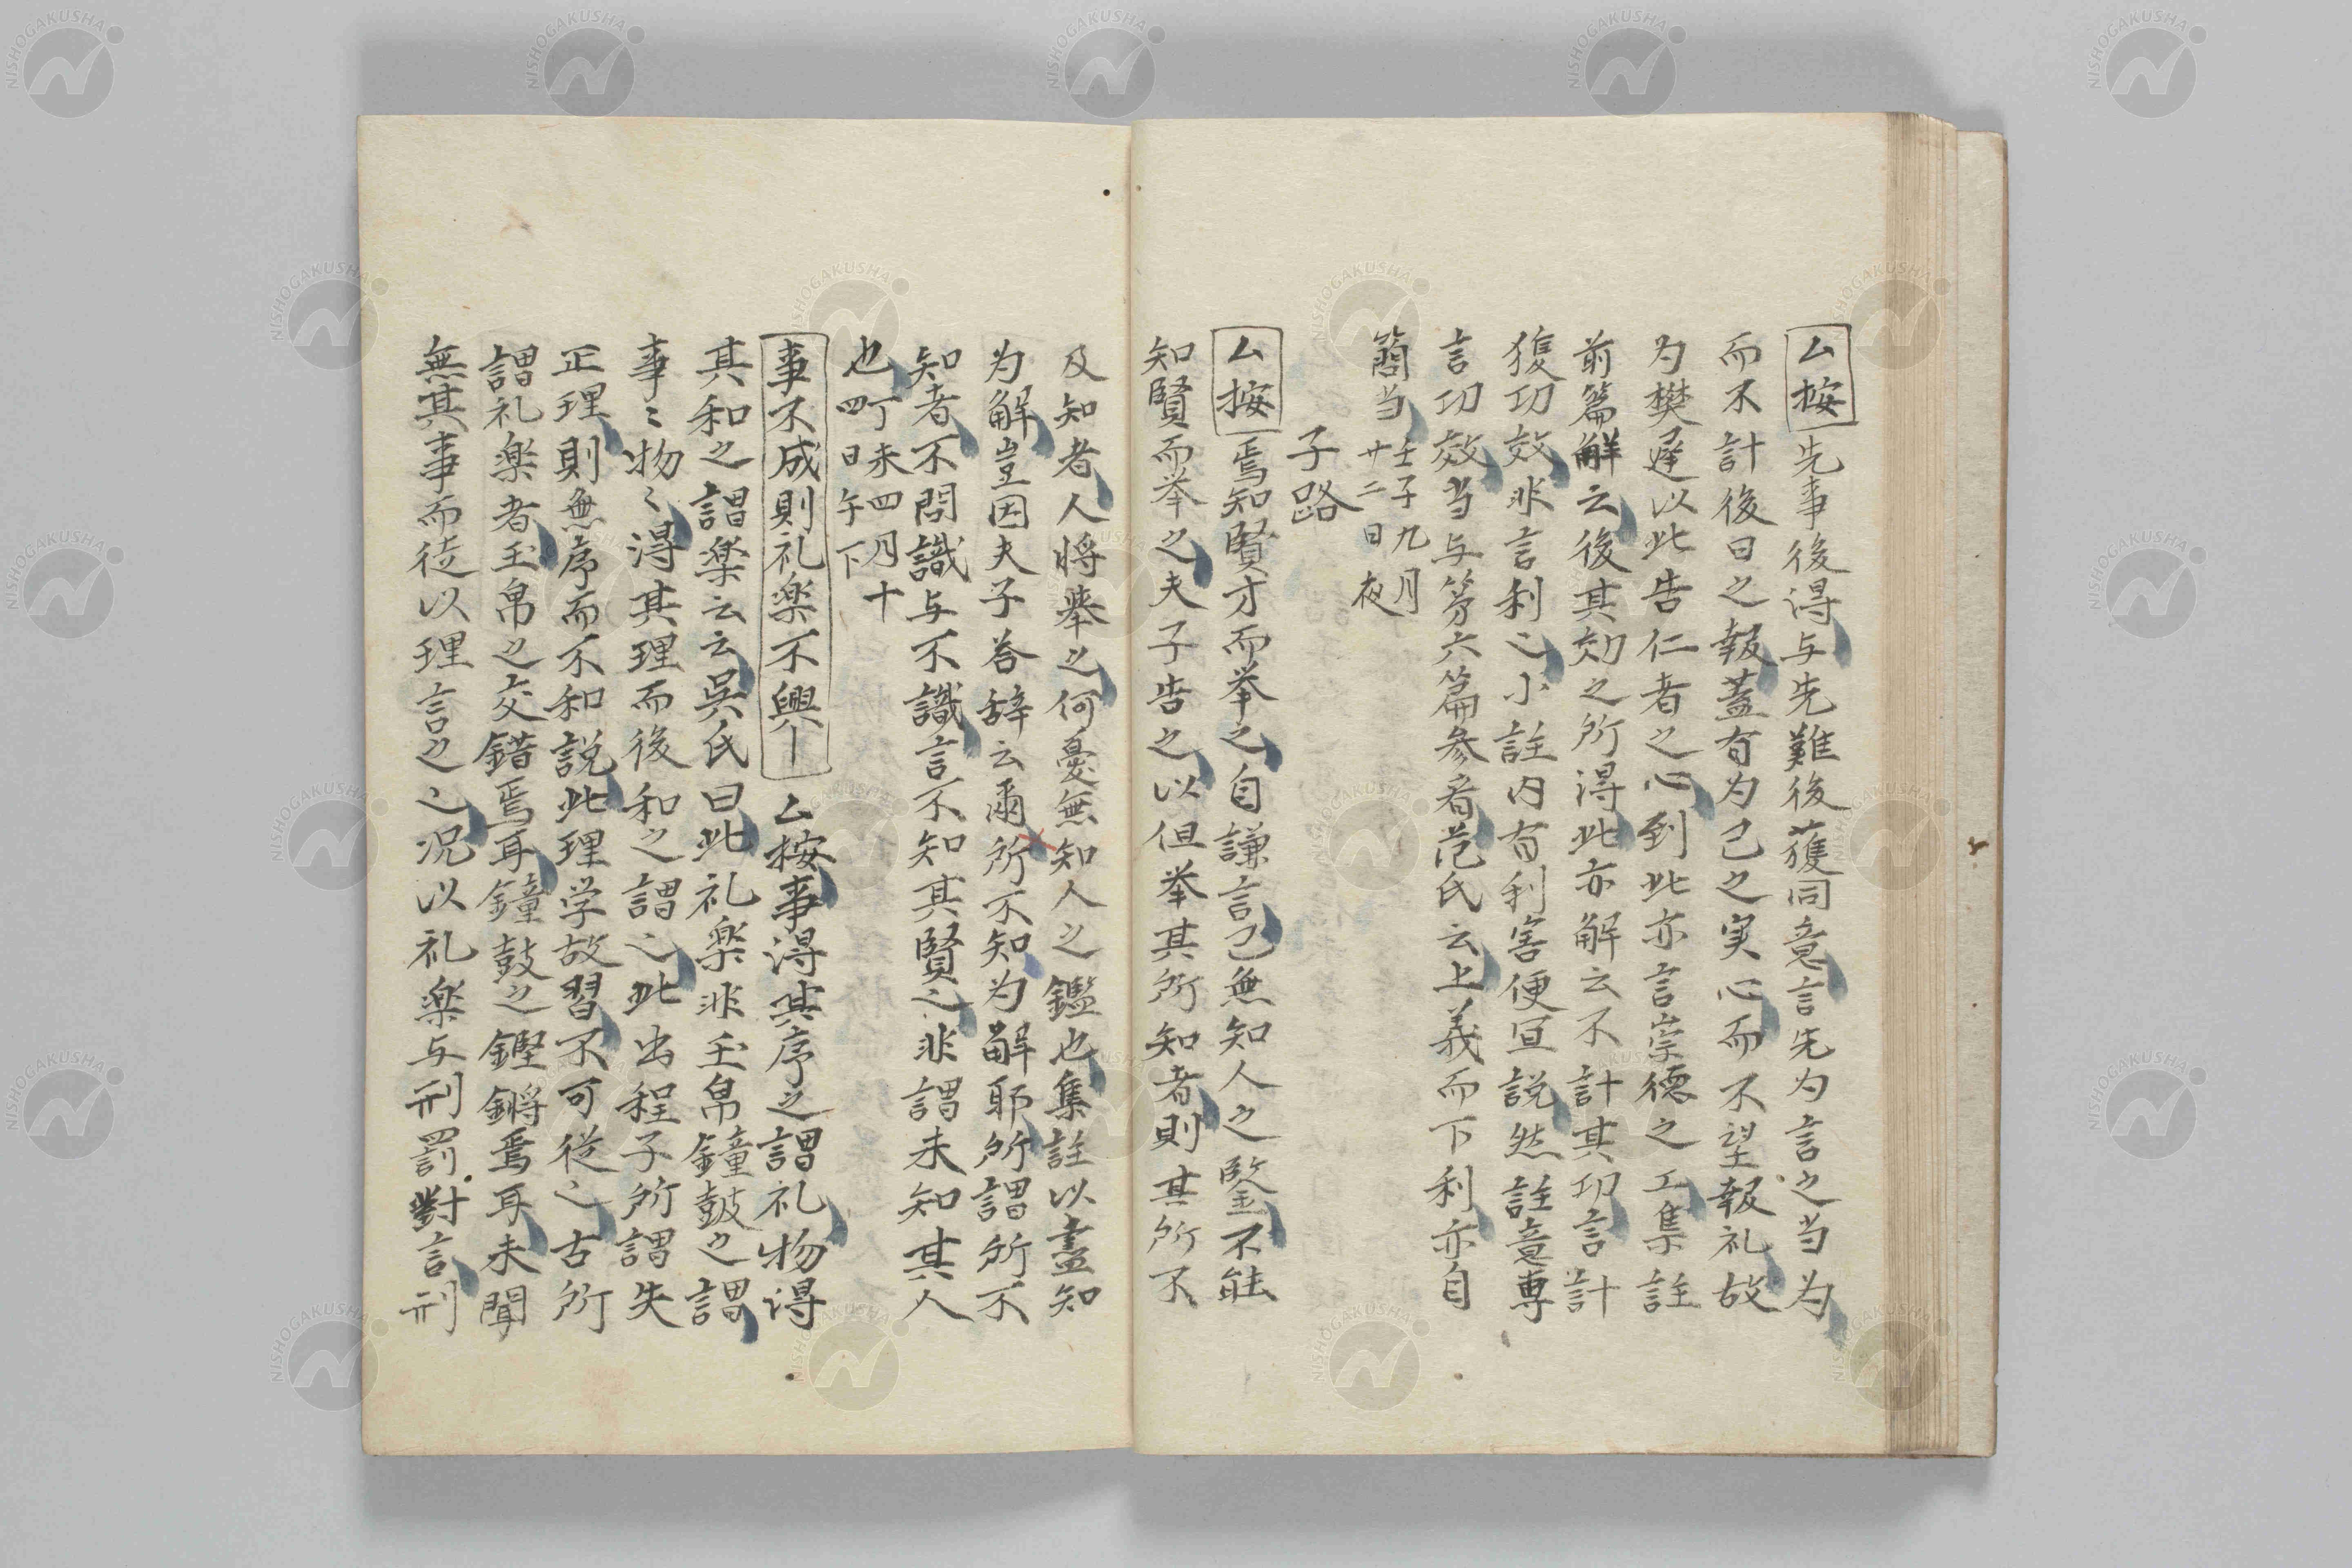 厶按先事後得与先難後獲同意言先为言之当为
而不計後日之報蓋有为己之実心而不望報礼故
为樊遅以此告仁者之心到此亦言崇德之工集註
前篇解云後其効之所得此亦解云不計其功言計
獲功效非言利之小註内有利害便宜説然註意専
言功效当与第六篇参看范氏云上義而下利亦自
簡当壬子九月廿二日夜
子路
厶按焉知賢才而挙之自謙言己無知人之鑒不能
知賢而挙之夫子告之以但挙其所知者則其所不
及知者人将挙之何憂無知人之鑑也集註以盡知
为解豈因夫子答辞云爾所不知为解耶所謂所不
知者不問識与不識言不知其賢之非謂未知其人
也丁未四月十四日午下
事不成則礼楽不興｜厶按事得其序之謂礼物得
其和之謂楽云云呉氏曰此礼楽非玉帛鐘鼓之謂
事〻物〻得其理而後和之謂之此出程子所謂失
正理則無序而不和説此理学故習不可従之古所
謂礼楽者玉帛之交錯焉耳鐘鼓之鏗鏘焉耳未聞
無其事而徒以理言之之况以礼楽与刑罰対言刑
NISHOGAKUSHA